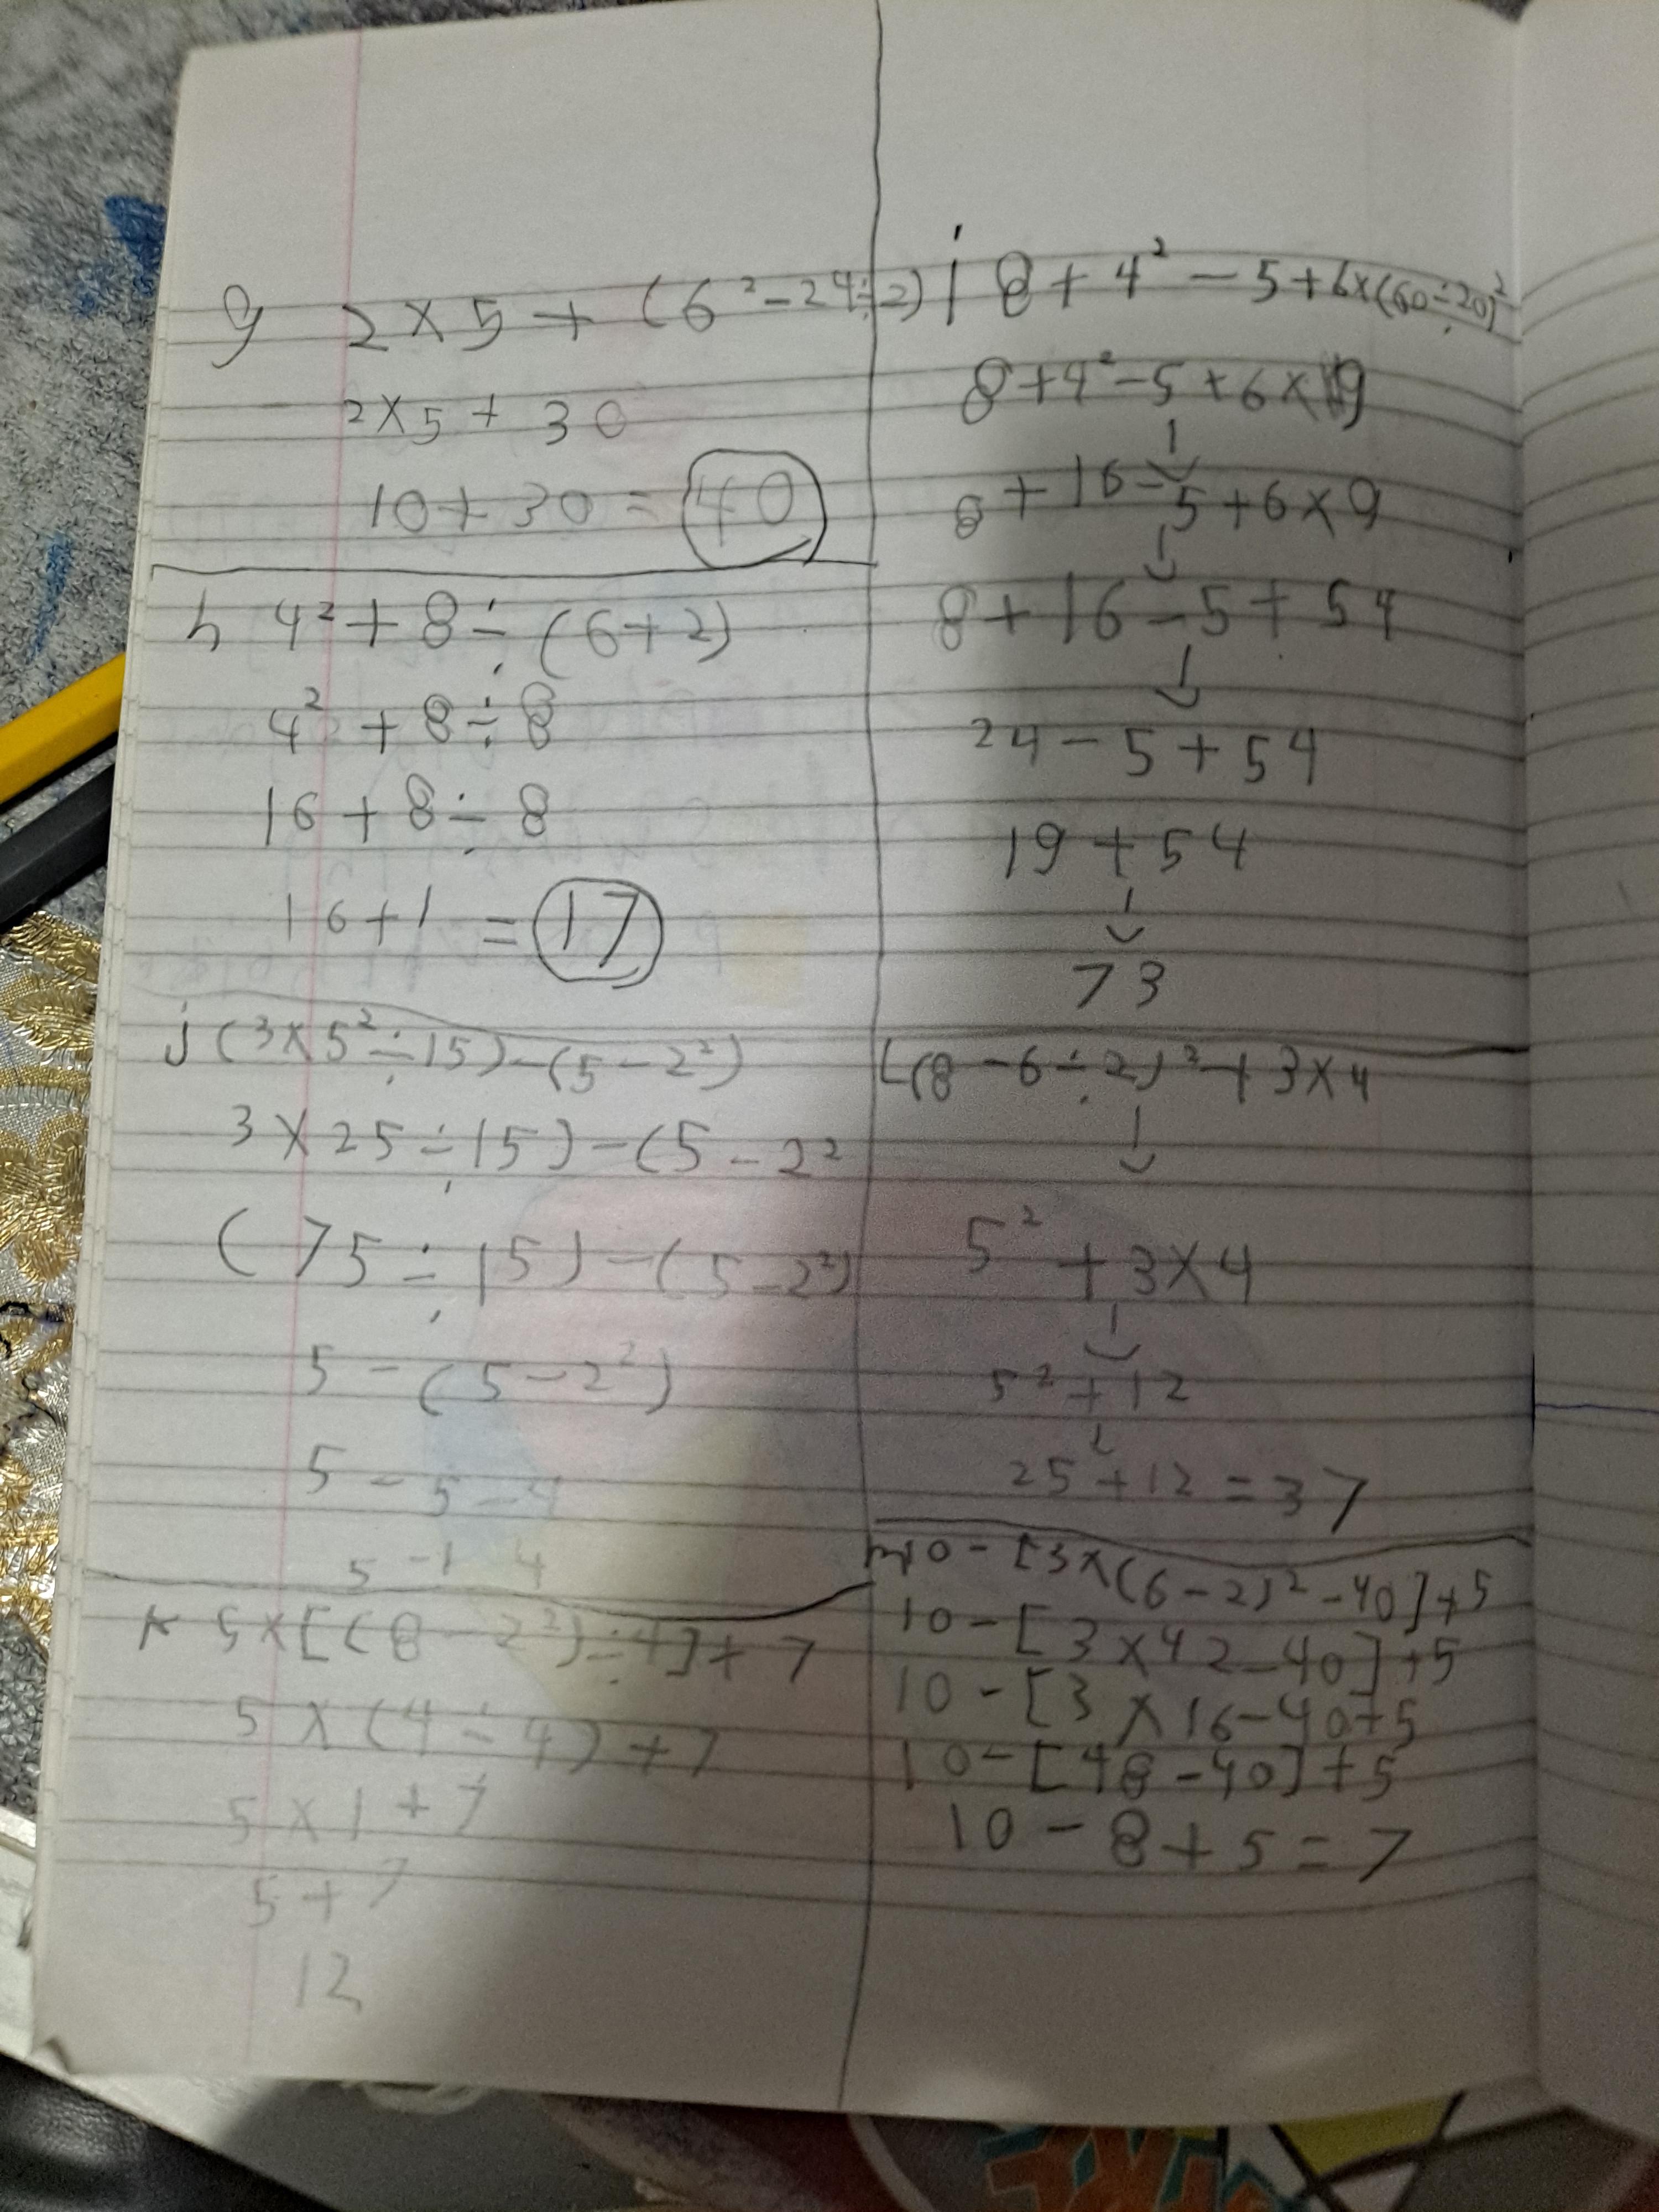 g 2 × 5 + (6² - 24 ÷ 2)
2 × 5 + 30
10 + 30 = 40
h 4² + 8 ÷ (6 + 2)
4² + 8 ÷ 8
16 + 8 ÷ 8
16 + 1 = 17
j (3 × 5² ÷ 15) - (5 - 2²)
3 × 25 ÷ 15) - (5 - 2²
(75 ÷ 15) - (5 - 2²)
5 - (5 - 2²)
5 - 5 - 4
5 - 1 4
k 5 × [(8 - 2²) ÷ 4] + 7
5 × (4 ÷ 4) + 7
5 × 1 + 7
5 + 7
12
i 8 + 4² - 5 + 6 × (60 ÷ 20)²
8 + 4² - 5 + 6 × 9
8 + 16 - 5 + 6 × 9
8 + 16 - 5 + 54
24 - 5 + 54
19 + 54
73
L (8 - 6 ÷ 2)² + 3 × 4
5² + 3 × 4
5² + 12
25 + 12 = 37
m 10 - [3 × (6 - 2)² - 40] + 5
10 - [3 × 42 - 40] + 5
10 - [3 × 16 - 40 + 5
10 - [48 - 40] + 5
10 - 8 + 5 = 7